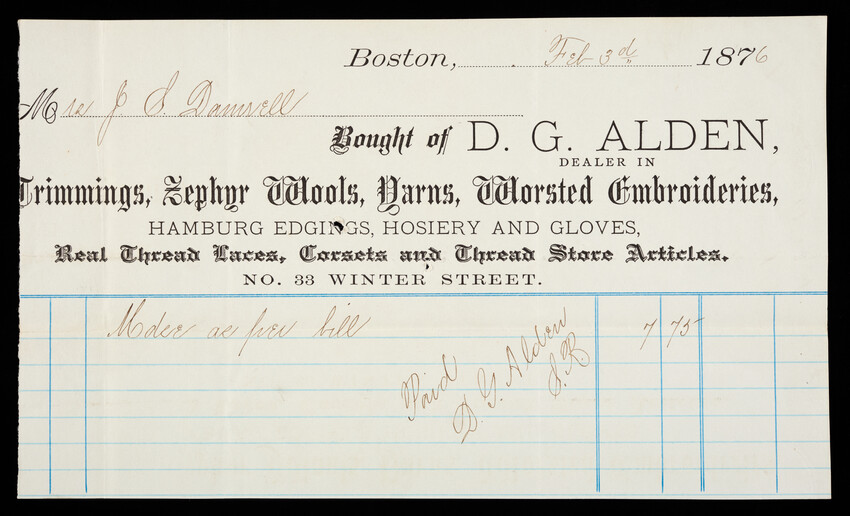 Boston, Feb 3d 1876
Mrs J. S. Damrell
Bought of D. G. ALDEN,
DEALER IN
Trimmings, Zephyr Wools, Yarns, Worsted Embroideries,
HAMBURG EDGINGS, HOSIERY AND GLOVES,
Real Thread Laces, Corsets and Thread Store Articles.
NO. 33 WINTER STREET.
Mdse as per bill 7 75
Paid
D. G. Alden
S. R.